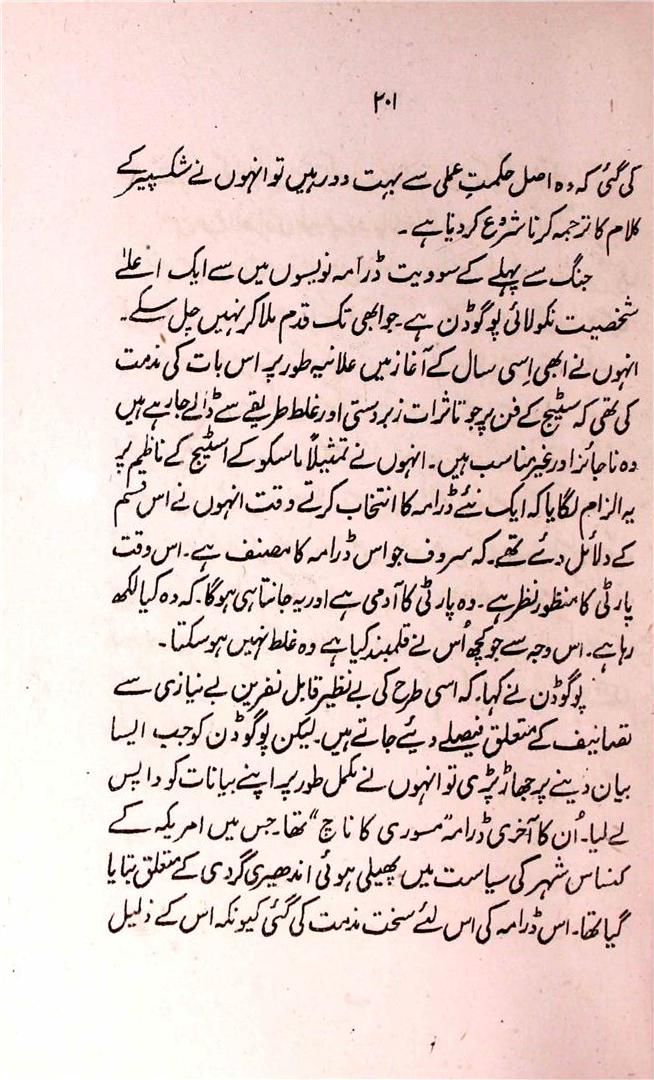 ۲۰۱
کی گئی کہ وہ اصل حکمتِ عملی سے بہت دور ہیں تو انہوں نے شکسپیر کے
کلام کا ترجمہ کرنا شروع کر دیا ہے۔
جنگ سے پہلے کے سوویت ڈرامہ نویسوں میں سے ایک اعلےٰ
شخصیت نکولائی پوگوڈن ہے۔ جو ابھی تک قدم ملا کر نہیں چل سکے۔
انہوں نے ابھی اِسی سال کے آغاز میں علانیہ طور پر اس بات کی مذمت
کی تھی کہ سٹیج کے فن پر جو تاثرات زبردستی اور غلط طریقے سے ڈالے جا رہے ہیں
وہ ناجائز اور غیر مناسب ہیں۔ انہوں نے تمثیلاً ماسکو کے اسٹیج کے ناظیم پر
یہ الزام لگایا کہ ایک نئے ڈرامہ کا انتخاب کرتے وقت انہوں نے اس قسم
کے دلائل دئے تھے۔ کہ سروف جو اس ڈرامہ کا مصنف ہے۔ اس وقت
پارٹی کا منظورِ نظر ہے۔ وہ پارٹی کا آدمی ہے اور یہ جانتا ہی ہوگا۔ کہ وہ کیا لکھ
رہا ہے۔ اس وجہ سے جو کچھ اُس نے قلمبند کیا ہے وہ غلط نہیں ہو سکتا۔
پوگوڈن نے کہا۔ کہ اسی طرح کی بے نظیر قابل نفرین بے نیازی سے
تصانیف کے متعلق فیصلے دیئے جاتے ہیں۔ لیکن پوگوڈن کو جب ایسا
بیان دینے پر جھاڑ پڑی تو انہوں نے مکمل طور پر اپنے بیانات کو واپس
لے لیا۔ اُن کا آخری ڈرامہ "مسوری کا ناچ" تھا۔ جس میں امریکہ کے
کنساس شہر کی سیاست میں پھیلی ہوئی اندھیری گردی کے متعلق بتایا
گیا تھا۔ اس ڈرامہ کی اس لئے سخت مذمت کی گئی کیونکہ اس کے ذلیل